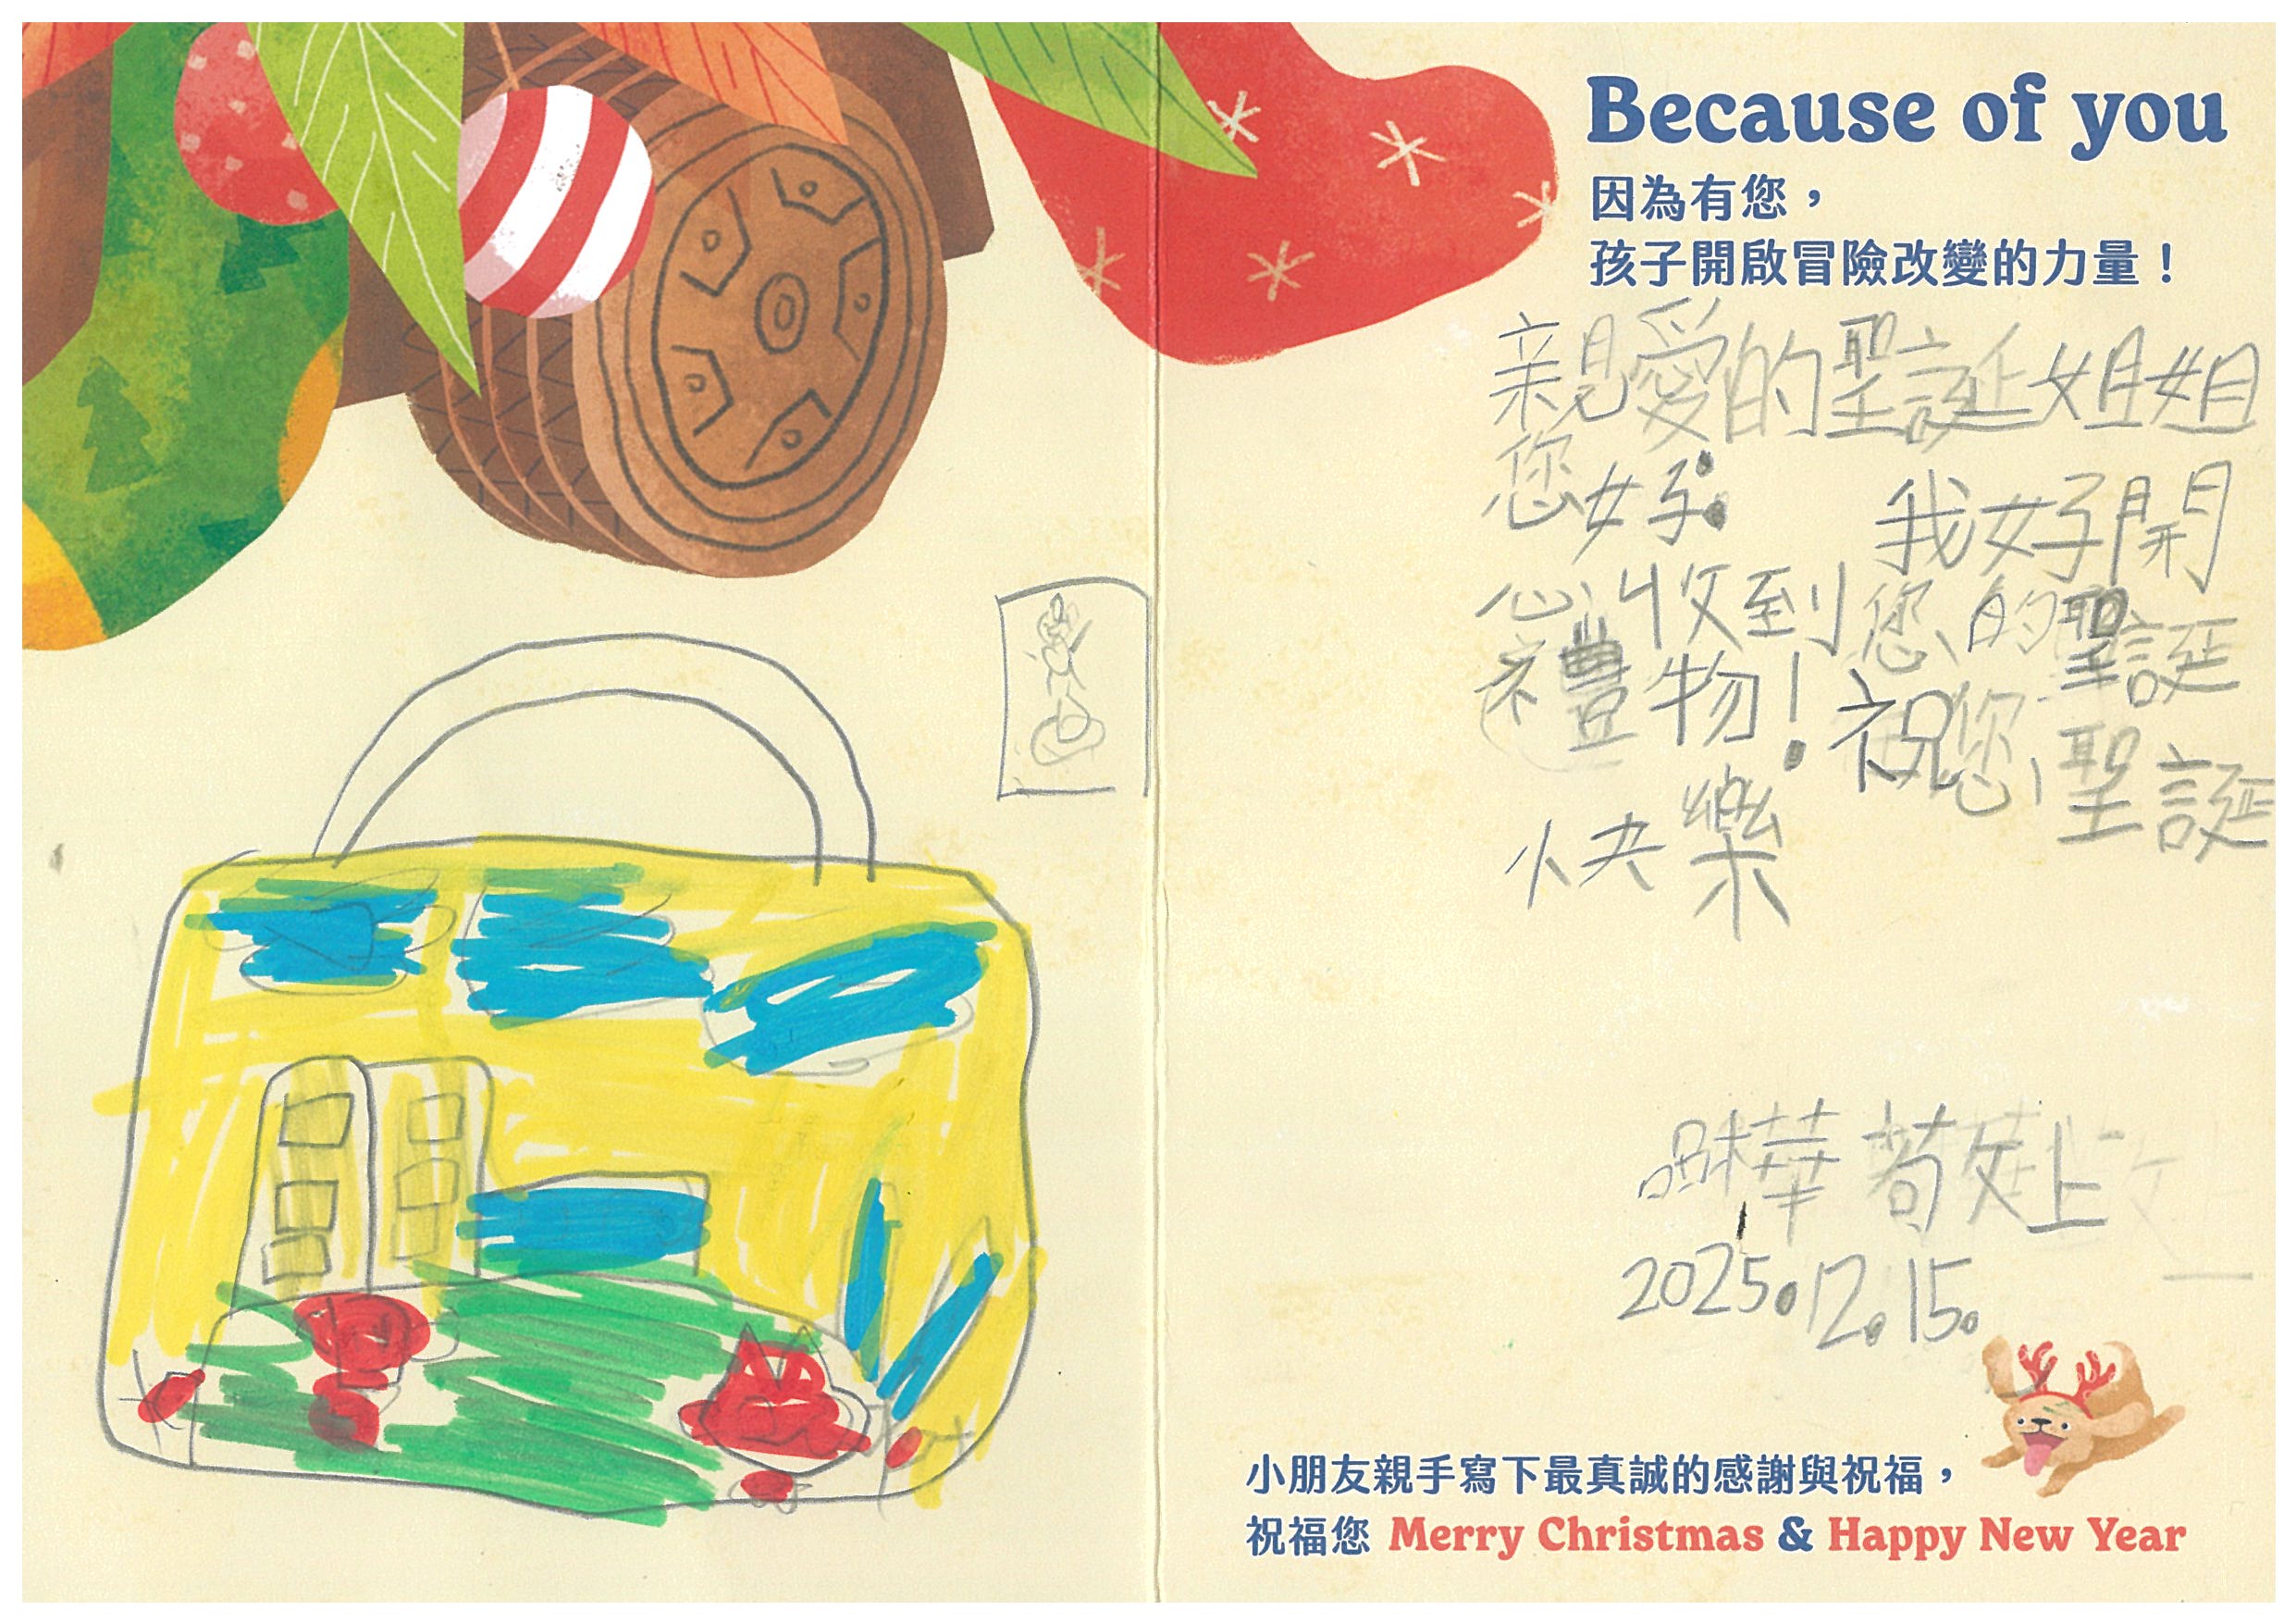 Because of you
因為有您，
孩子開啟冒險改變的力量！
親愛的聖誕姐姐
您好：
我好開
心收到您的聖誕
禮物！祝您聖誕
快樂
樺 敬上
2025.12.15.
小朋友親手寫下最真誠的感謝與祝福，
祝福您 Merry Christmas & Happy New Year